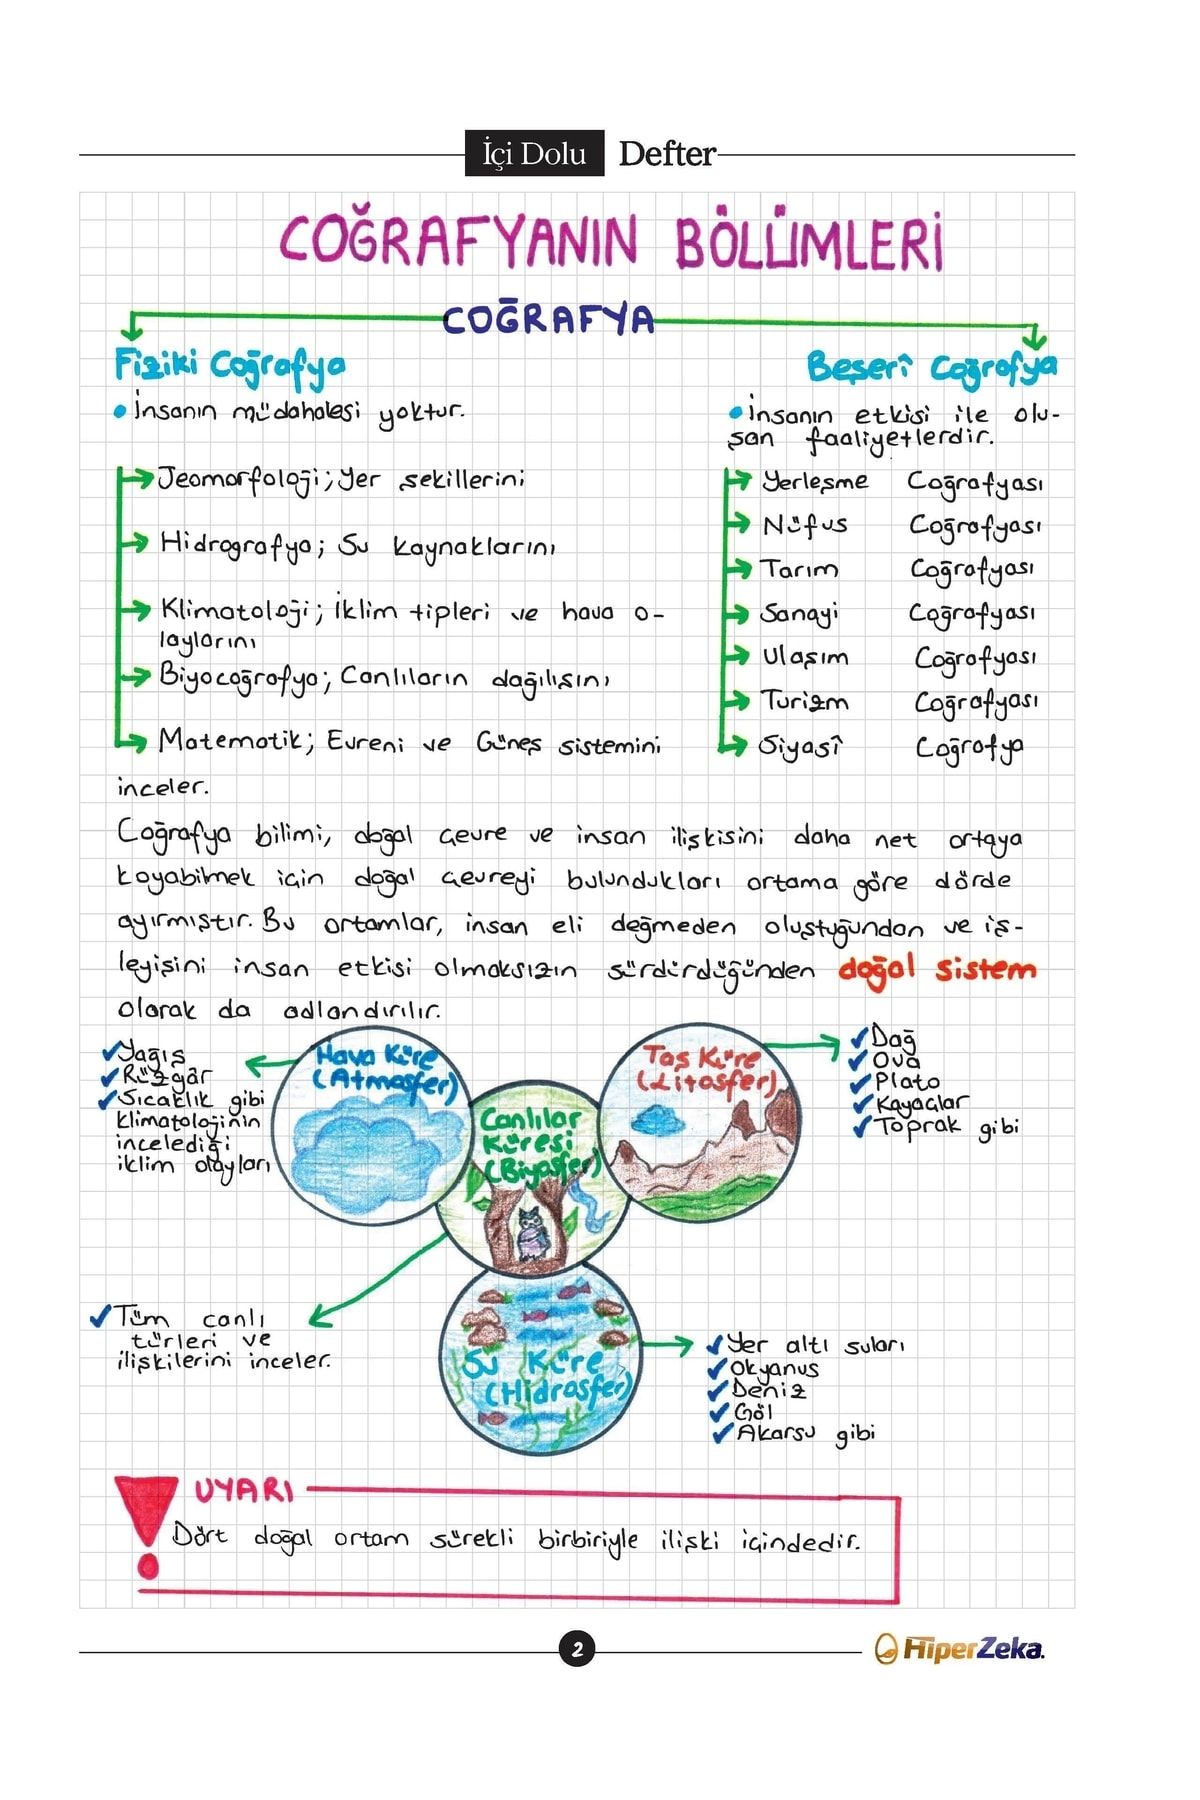 İçi Dolu Defter
COĞRAFYANIN BÖLÜMLERİ
COĞRAFYA
Fiziki Coğrafya
• İnsanın müdahalesi yoktur.
Jeomorfoloji; Yer şekillerini
Hidrografya; Su kaynaklarını
Klimatoloji; İklim tipleri ve hava o-
laylarını
Biyocoğrafya; Canlıların dağılışını
Matematik; Evreni ve Güneş sistemini
inceler.
Beşerî Coğrafya
• İnsanın etkisi ile olu-
şan faaliyetlerdir.
Yerleşme Coğrafyası
Nüfus Coğrafyası
Tarım Coğrafyası
Sanayi Coğrafyası
Ulaşım Coğrafyası
Turizm Coğrafyası
Siyasî Coğrafya
Coğrafya bilimi, doğal çevre ve insan ilişkisini daha net ortaya
koyabilmek için doğal çevreyi bulundukları ortama göre dörde
ayırmıştır. Bu ortamlar, insan eli değmeden oluştuğundan ve iş-
leyişini insan etkisi olmaksızın sürdürdüğünden doğal sistem
olarak da adlandırılır.
✓ Yağış
✓ Rüzgâr
✓ Sıcaklık gibi
klimatolojinin
incelediği
iklim olayları
Hava Küre
(Atmosfer)
Canlılar
Küresi
(Biyosfer)
Taş Küre
(Litosfer)
✓ Dağ
✓ Ova
✓ Plato
✓ Kayaçlar
✓ Toprak gibi
✓ Tüm canlı
türleri ve
ilişkilerini inceler.
Su Küre
(Hidrosfer)
✓ Yer altı suları
✓ Okyanus
✓ Deniz
✓ Göl
✓ Akarsu gibi
UYARI
Dört doğal ortam sürekli birbiriyle ilişki içindedir.
2
HiperZeka.